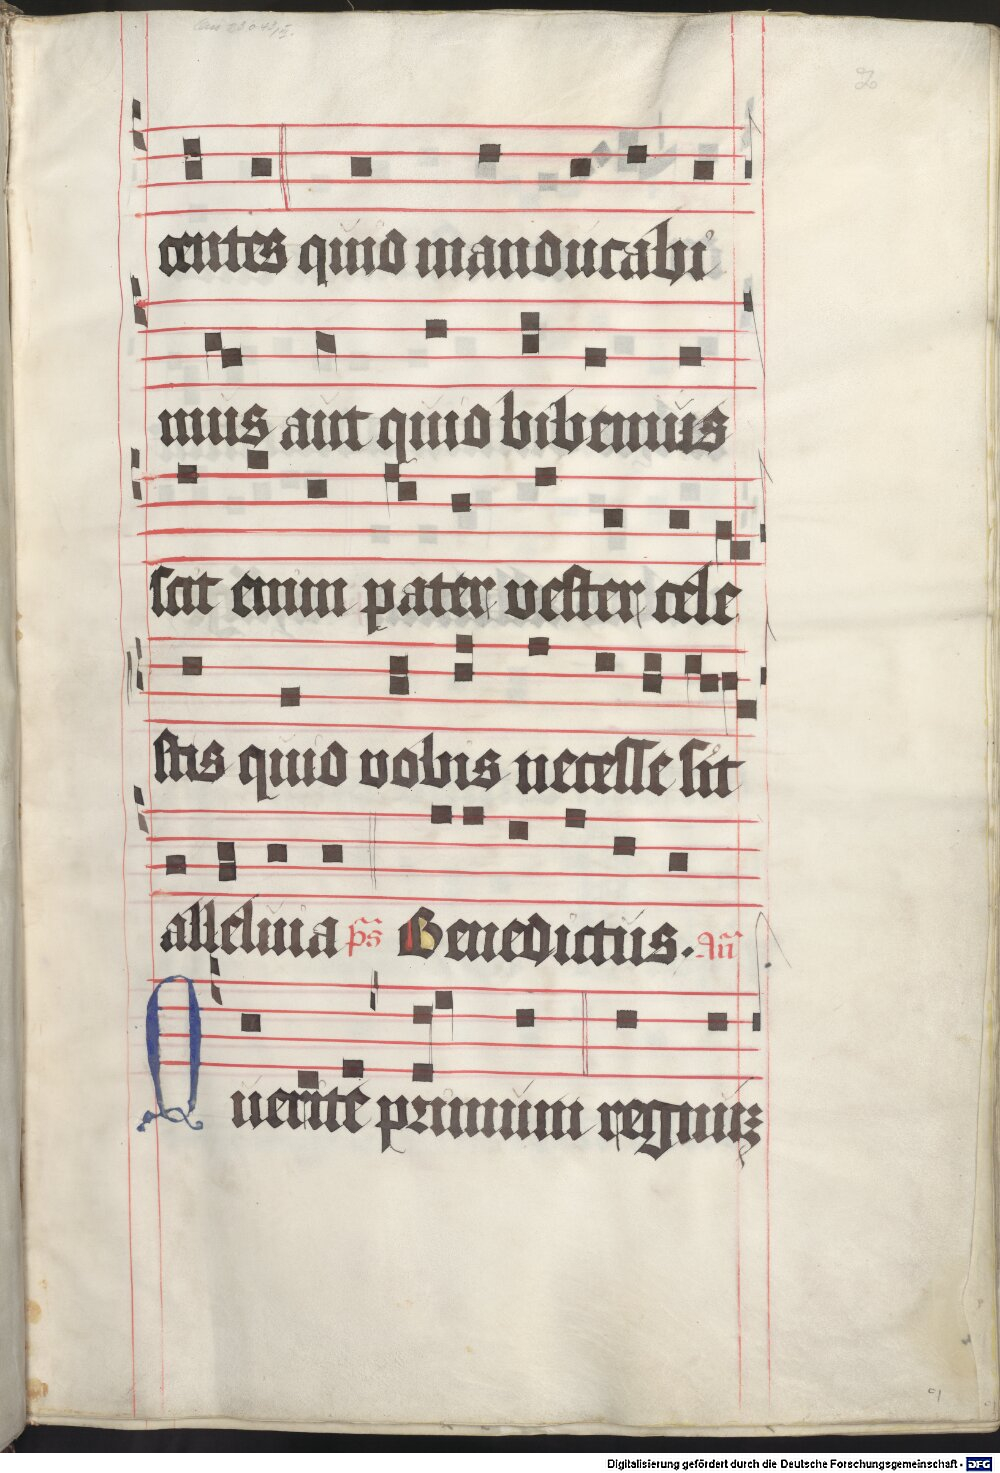 centes quid manducabi
mus aut quid bibemus
scit enim pater vester cele
stis quid vobis necesse sit
alleluia p̃s Benedictus. Añ
Querite primum regnuz
Digitalisierung gefördert durch die Deutsche Forschungsgemeinschaft - DFG